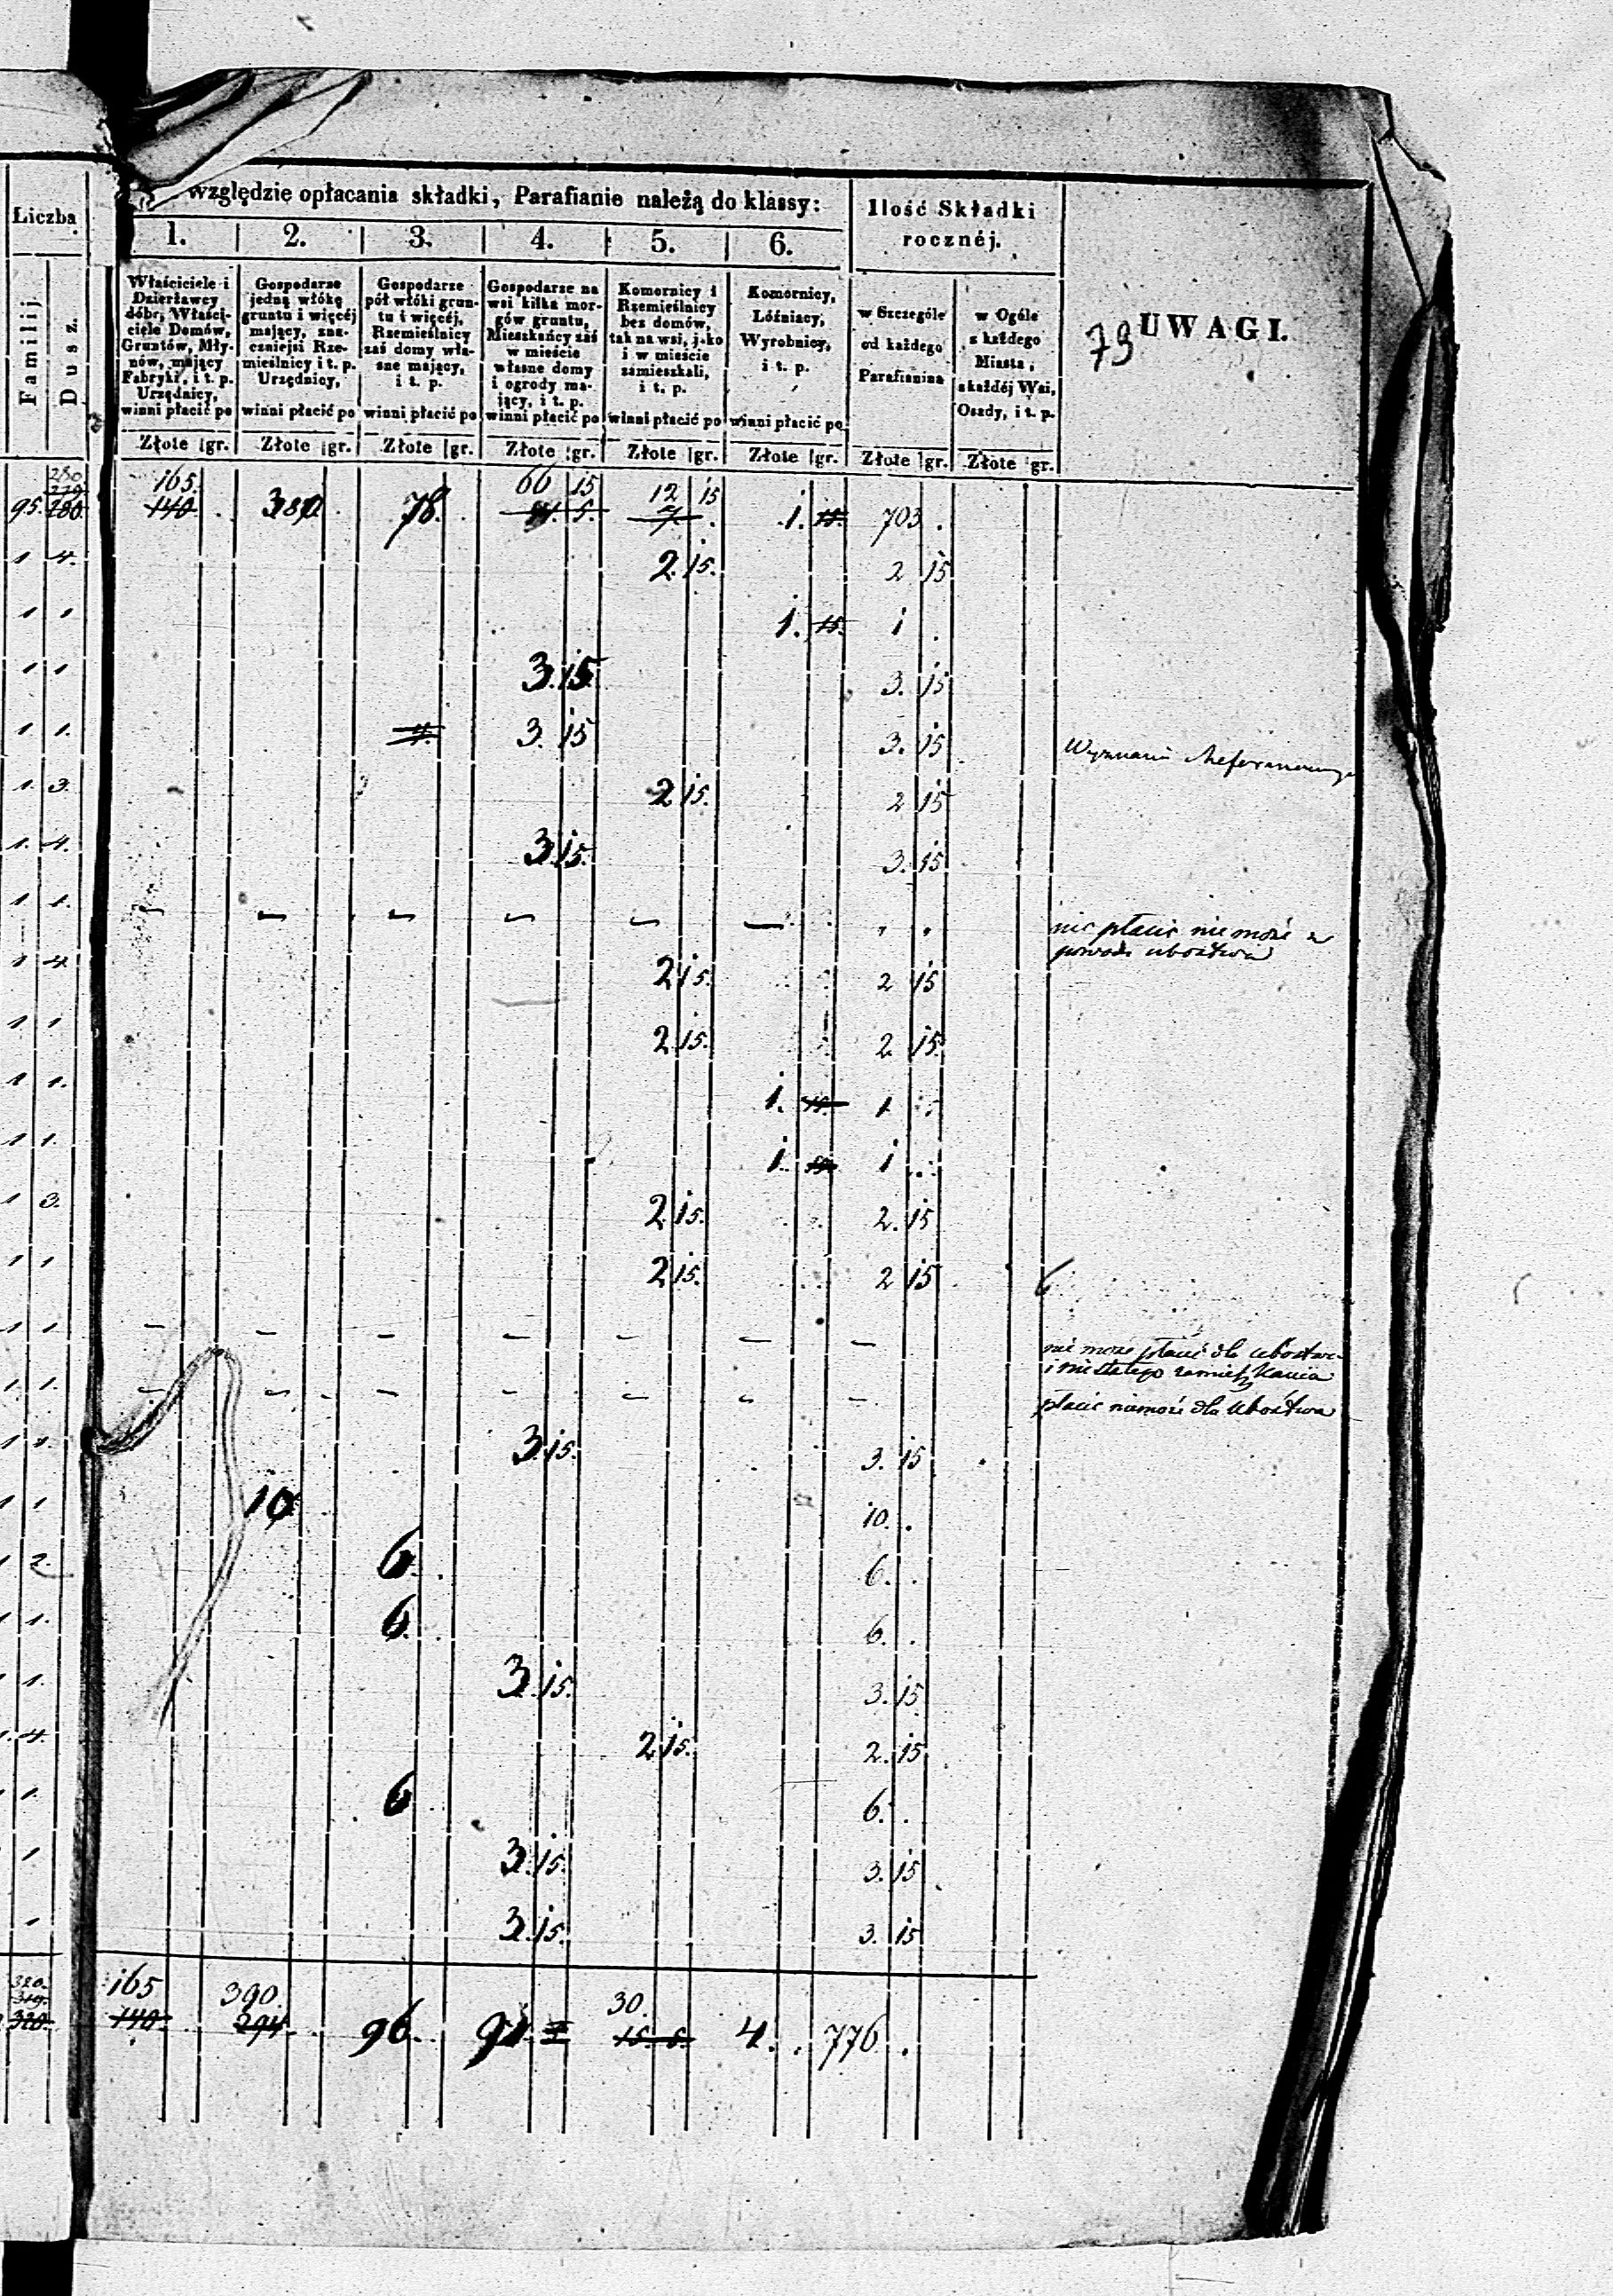 względzie opłacania składki, Parafianie należą do klassy:
Ilość Składki
rocznéj.
Liczba
1. 2. 3. 4. 5. 6.
Familij
Dusz.
Właściciele i
Dzierławcy
dóbr, Właści-
ciele Domów,
Gruntów, Mły-
nów, mający
Fabryki, i t. p.
Urzędnicy,
winni płacić po
Gospodarze
jedną włókę
gruntu i więcéj
mający, zna-
czniejsi Rze-
mieślnicy i t. p.
Urzędnicy,
winni płacić po
Gospodarze
pół włóki grun-
tu i więcéj,
Rzemieślnicy
zaś domy wła-
sne mający,
i t. p.
winni płacić po
Gospodarze na
wsi kilka mor-
gów gruntu,
Mieszkańcy zaś
w mieście
własne domy
i ogrody ma-
jący, i t. p.
winni płacić po
Komornicy i
Rzemieślnicy
bez domów,
tak na wsi, jako
i w mieście
zamieszkali,
i t. p.
winni płacić po
Komornicy,
Lóźniacy,
Wyrobnicy,
i t. p.
winni płacić po
w Szczególe
od każdego
Parafianina
w Ogóle
z każdego
Miasta,
z każdéj Wsi,
Osady, i t. p.
79 UWAGI.
Złote gr. Złote gr. Złote gr. Złote gr. Złote gr. Złote gr. Złote gr. Złote gr.
280 165. 66 15 12 15
95. 280. 140 . 380 78. 5. 7 . 1. 15. 703 .
1 4. 2. 15. 2 15
1 1 1. 15. 1 .
1 1 3. 15. 3. 15
1 1. 4. 3. 15 3. 15 Wyznania Reformowanego
1. 3. 2 15. 2 15
1. 4. 3. 15. 3. 15
1 1. – – – – – – nic płacic nie może z
powodu ubóstwa
1 4. 2 15. 2 15
1 1 2. 15. 2 15.
1 1. 1. 15. 1
1 1. 1. 15. 1
1 3. 2. 15. 2. 15
1 1 2 15. 2 15
1 1 – – – – – – – nie może płacić dla ubostwa
i niestałego zamieszkania
1. 1. – – – – – – – płacic niemoże dla ubóstwa
1 1. 3. 15. 3. 15
1 1 10 10. .
1 2. 6. . 6. .
1 1. 6. . 6. .
1 1. 3. 15. 3. 15
1. 4. 2 15. 2. 15
1. 6 6. .
1 3. 15. 3. 15
1 3. 15. 3. 15
320. 165 390. 30.
319.
320. 140. 294. 96. . 15. 5. 4. . 776. .